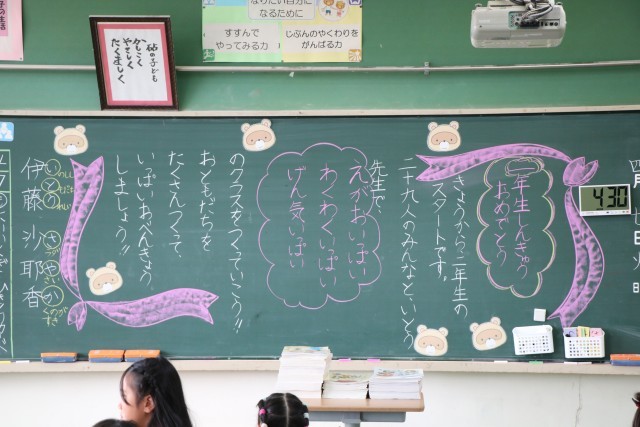 なりたい自分に
なるために
すすんで
やってみる力
じぶんのやくわりを
がんばる力
の子ども
かしこく
やさしく
たくましく
4:30
二年生しんきゅう
おめでとう
きょうから二年生の
スタートです。
二十九人のみんなと、いとう
先生で、
えがおいっぱい
わくわくいっぱい
げん気いっぱい
のクラスをつくっていこう!!
おともだちを
たくさんつくって、
いっぱいおべんきょう
しましょう!!
いとう さやか
伊藤 沙耶香